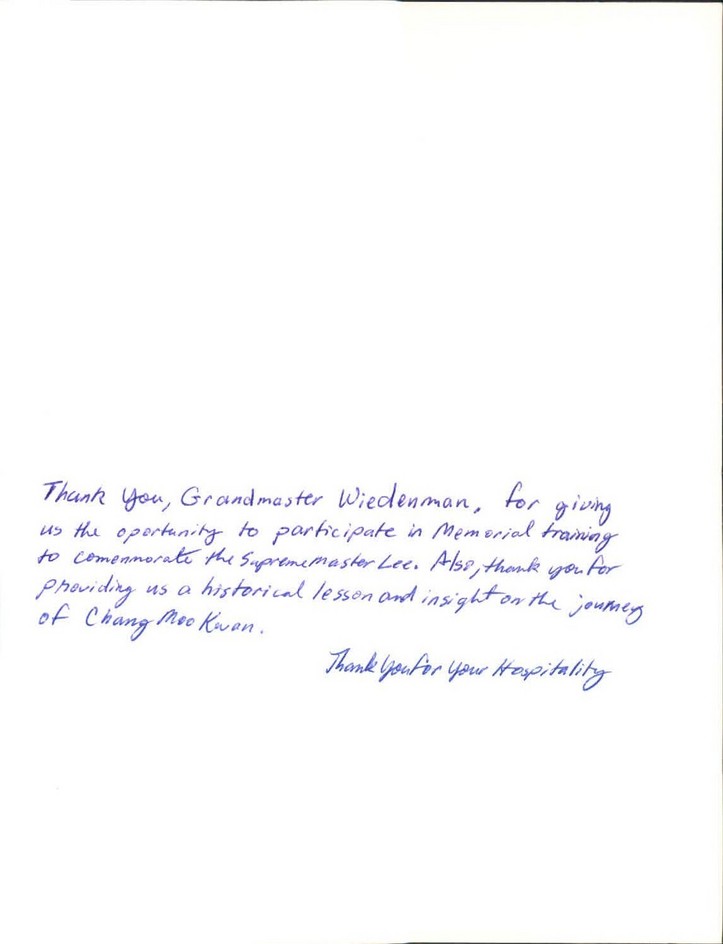 Thank You, Grandmaster Wiedenman, for giving
us the oportunity to participate in Memorial training
to comenmorate the Supreme Master Lee. Also, thank you for
providing us a historical lesson and insight on the journey
of Chang Moo Kwan.
Thank You for Your Hospitality